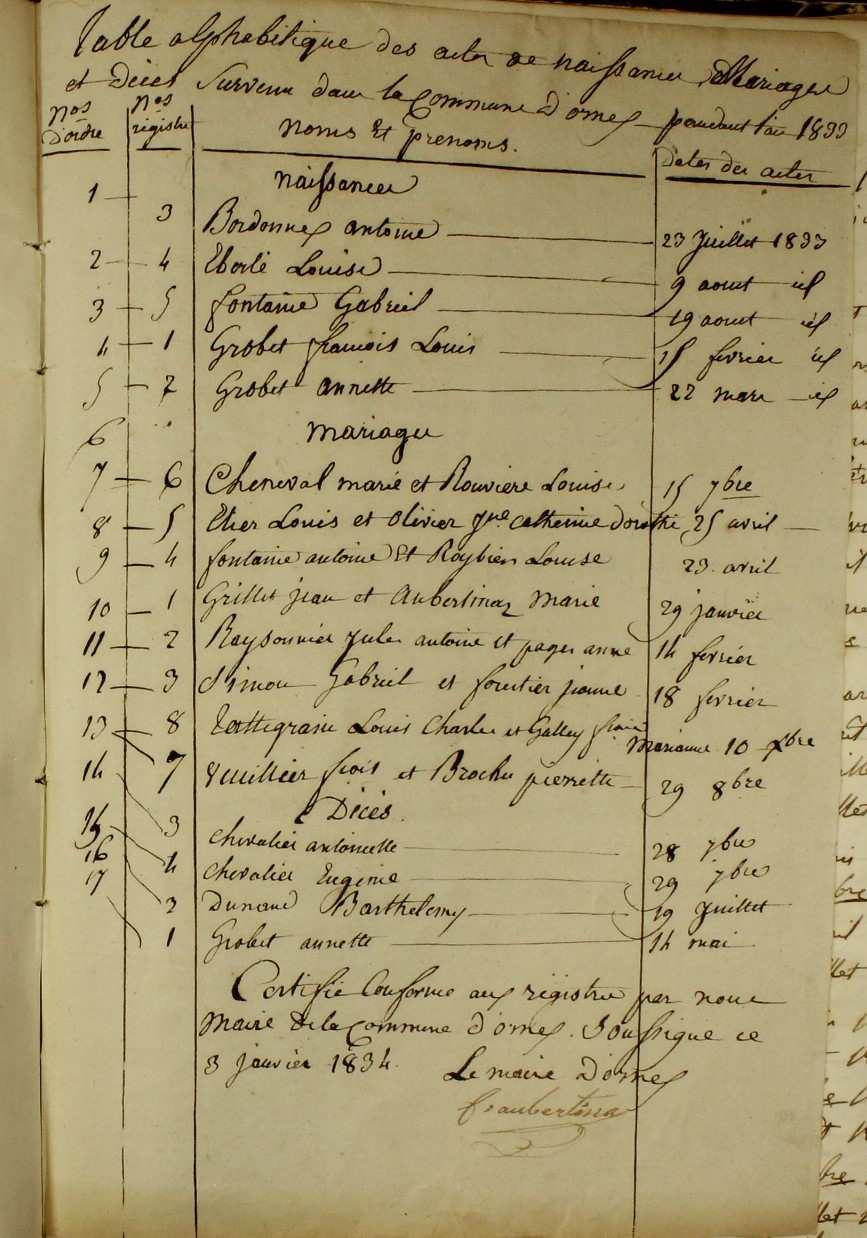 Table alphabitique des actes de naissances Mariages
et Déces Survenu dans la Commune d'ornex pendant l'an 1833
Nos d'ordre Nos registre noms Et prenoms. Dates des actes
naissances
1 3 Bordonnex antoine 23 Juillet 1833
2 4 Eberlé Louise 9 aout id
3 5 fontaine Gabriel 19 aout id
4 1 Grobet francois Louis 15 fevrier id
5 2 Grobet annette 22 mars id
6 mariages
7 6 Cheneval marie et Rouviere Louise 15 7bre
8 5 Etier Louis et olivier jne catherine Dorothé 25 avril
9 4 fontaine antoine Et Roybier Louise 23 avril
10 1 Grillet jean et Aubertinaz Marie 29 janvier
11 2 Raysonnier jules antoine et pages anne 14 fevrier
12 3 Simon Gabriel et forestier jeanne 18 fevrier
13 8 Tattegrain Louis Charles et Galley Marianne 10 bre
14 7 Vuillier frois et Brochu pierrette 29 8bre
Décés.
15 3 chevalier antoinette 28 7bre
16 4 chevalier Eugenie 29 7bre
17 2 Dunand Barthelemy 19 Juillet
1 Grobet annette 14 mai
Certifié Conforme aux registres par nous
Maire de la Commune d'ornex Soussigné ce
3 janvier 1834. Le maire D'ornex
aubertinaz